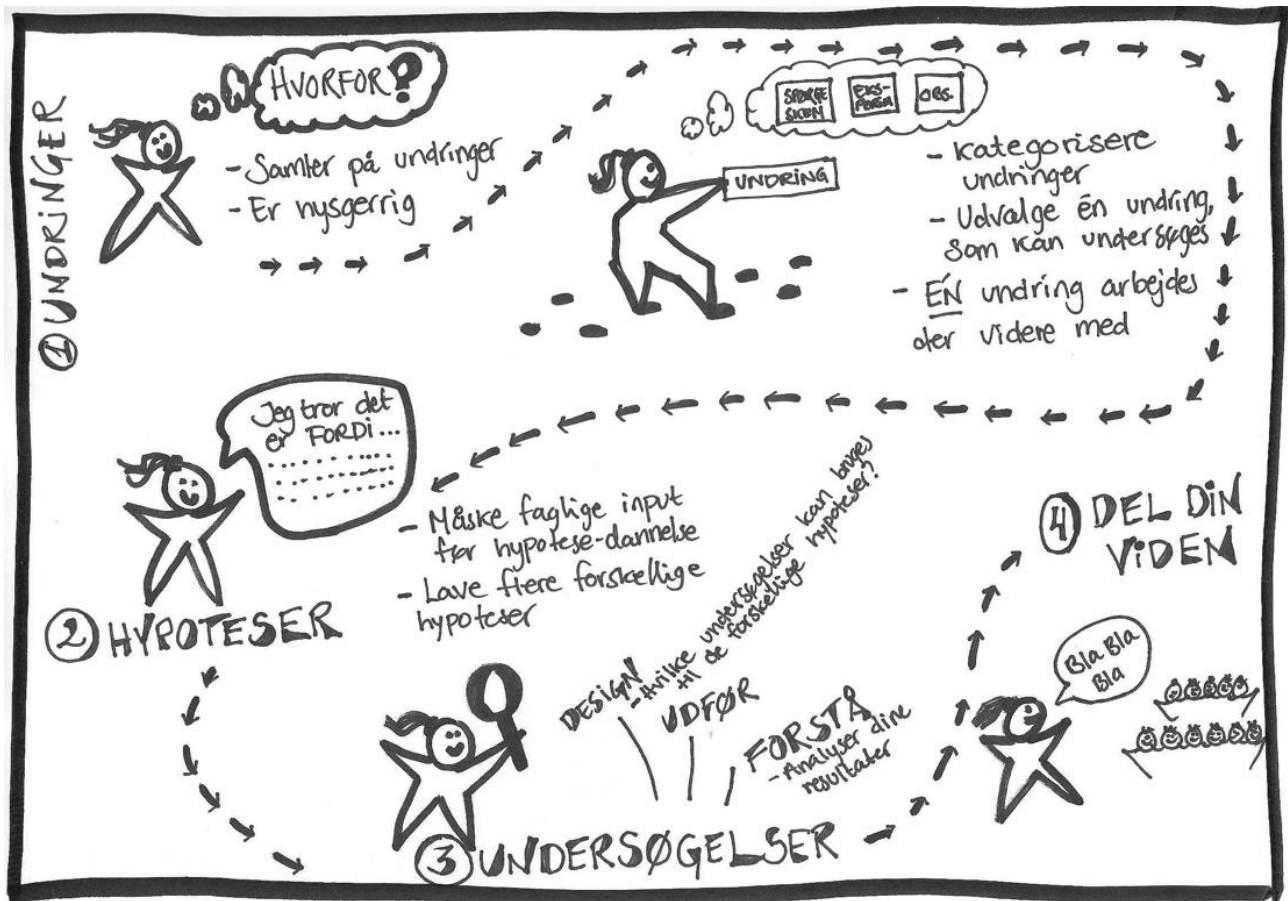 ① UNDRINGER
HVORFOR?
- Samler på undringer
- Er nysgerrig
SPØRGE
SKEM
EKS-
PERIM
OBS.
UNDRING
- Kategorisere
undringer
- Udvælge én undring,
som kan undersøges
- ÉN undring arbejdes
der videre med
Jeg tror det
er FORDI...
② HYPOTESER
- Måske faglige input
før hypotese-dannelse
- Lave flere forskellige
hypoteser
DESIGN
- Hvilke undersøgelser kan bruges
til de forskellige hypoteser?
UDFØR
FORSTÅ
- Analyser dine
resultater
③ UNDERSØGELSER
④ DEL DIN
VIDEN
Bla Bla
Bla